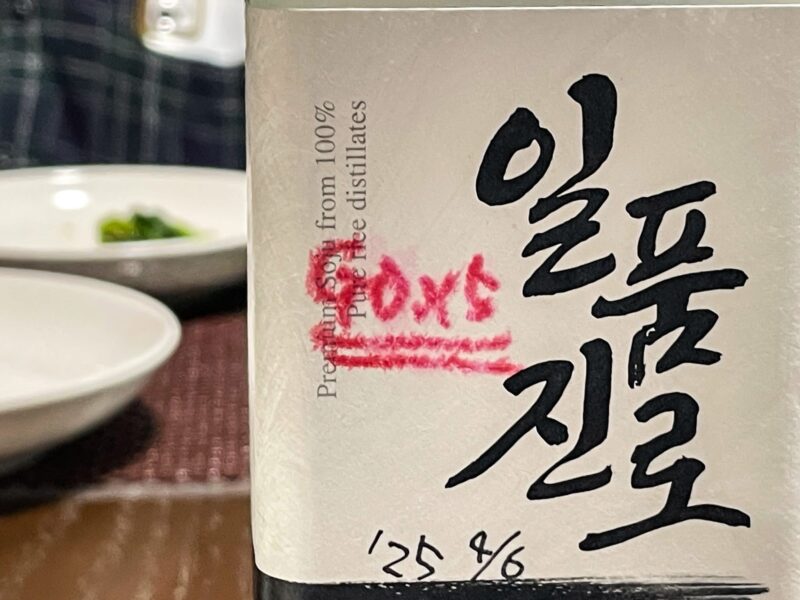 Premium Soju from 100%
Pure rice distillates
일품
진로
'25 4/6